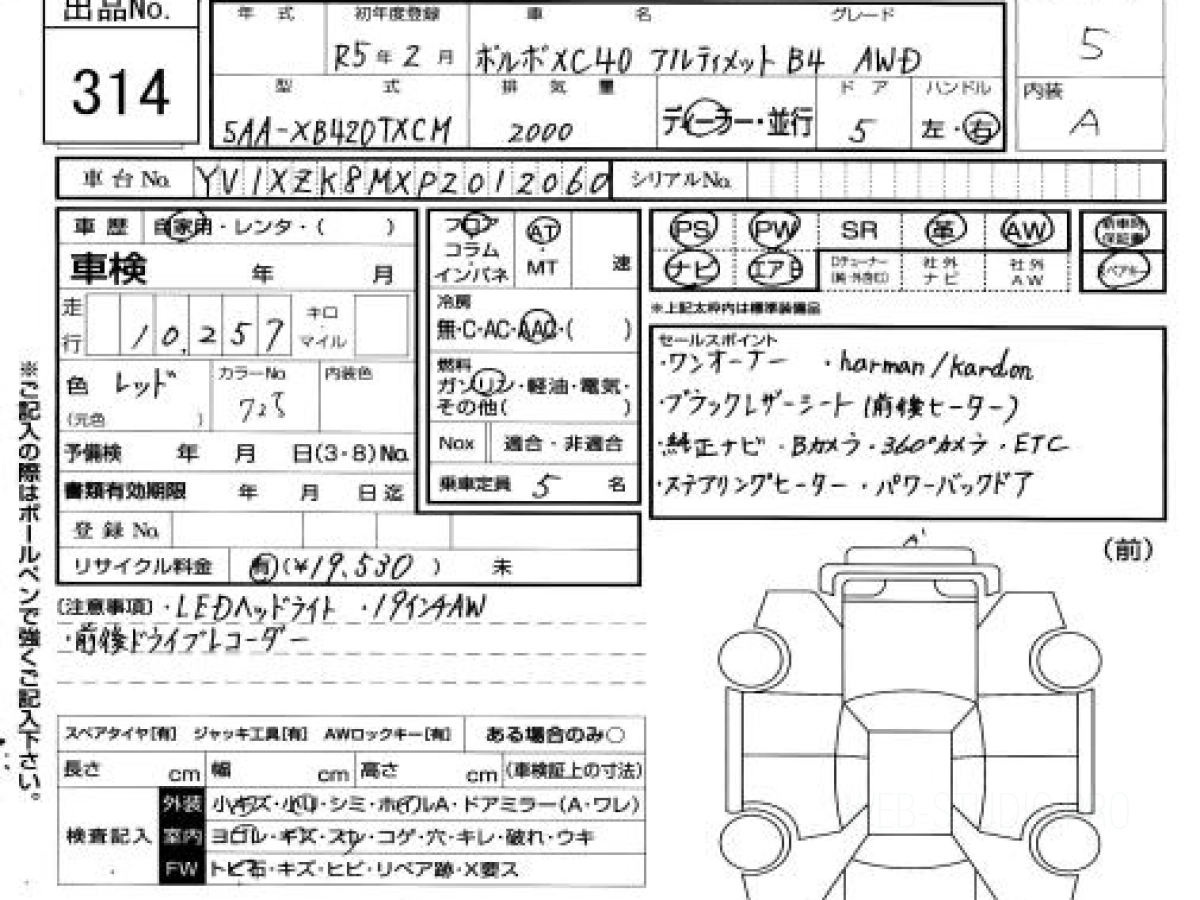 出品No.
314
年 式
初年度登録
車 名
グレード
R5年2月
ボルボXC40 アルティメット B4 AWD
5
型 式
排 気 量
ディーラー・並行
ドア
ハンドル
内装
5AA-XB420TXCM
2000
5
左・右
A
車台No. YV1XZK8MXP2012060 シリアルNo.
車歴 自家用・レンタ・( )
車検 年 月
走行 10,257 キロ・マイル
色 レッド
(元色 )
カラーNo 725
内装色
予備検 年 月 日(3・8)No.
書類有効期限 年 月 日迄
登録No.
リサイクル料金 有(¥19,530) 未
フロア
コラム
インパネ
AT
MT
速
冷房
無・C・AC・AAC・( )
燃料
ガソリン・軽油・電気・
その他( )
Nox 適合・非適合
乗車定員 5 名
PS PW SR 革 AW 新車時保証書
ナビ エアB Dチューナー(純・外含む) 社外ナビ 社外AW スペアキー
※上記太枠内は標準装備品
セールスポイント
・ワンオーナー ・harman/kardon
・ブラックレザーシート(前後ヒーター)
・純正ナビ・Bカメラ・360°カメラ・ETC
・ステアリングヒーター・パワーバックドア
(注意事項)・LEDヘッドライト ・19インチAW
・前後ドライブレコーダー
※ご記入の際はボールペンで強くご記入下さい。
A'
(前)
スペアタイヤ[有] ジャッキ工具[有] AWロックキー[有] ある場合のみ○
長さ cm 幅 cm 高さ cm (車検証上の寸法)
検査記入
外装 小キズ・小凹・シミ・ホイルA・ドアミラー(A・ワレ)
室内 ヨゴレ・キズ・スレ・コゲ・穴・キレ・破れ・ウキ
FW トビ石・キズ・ヒビ・リペア跡・X要ス